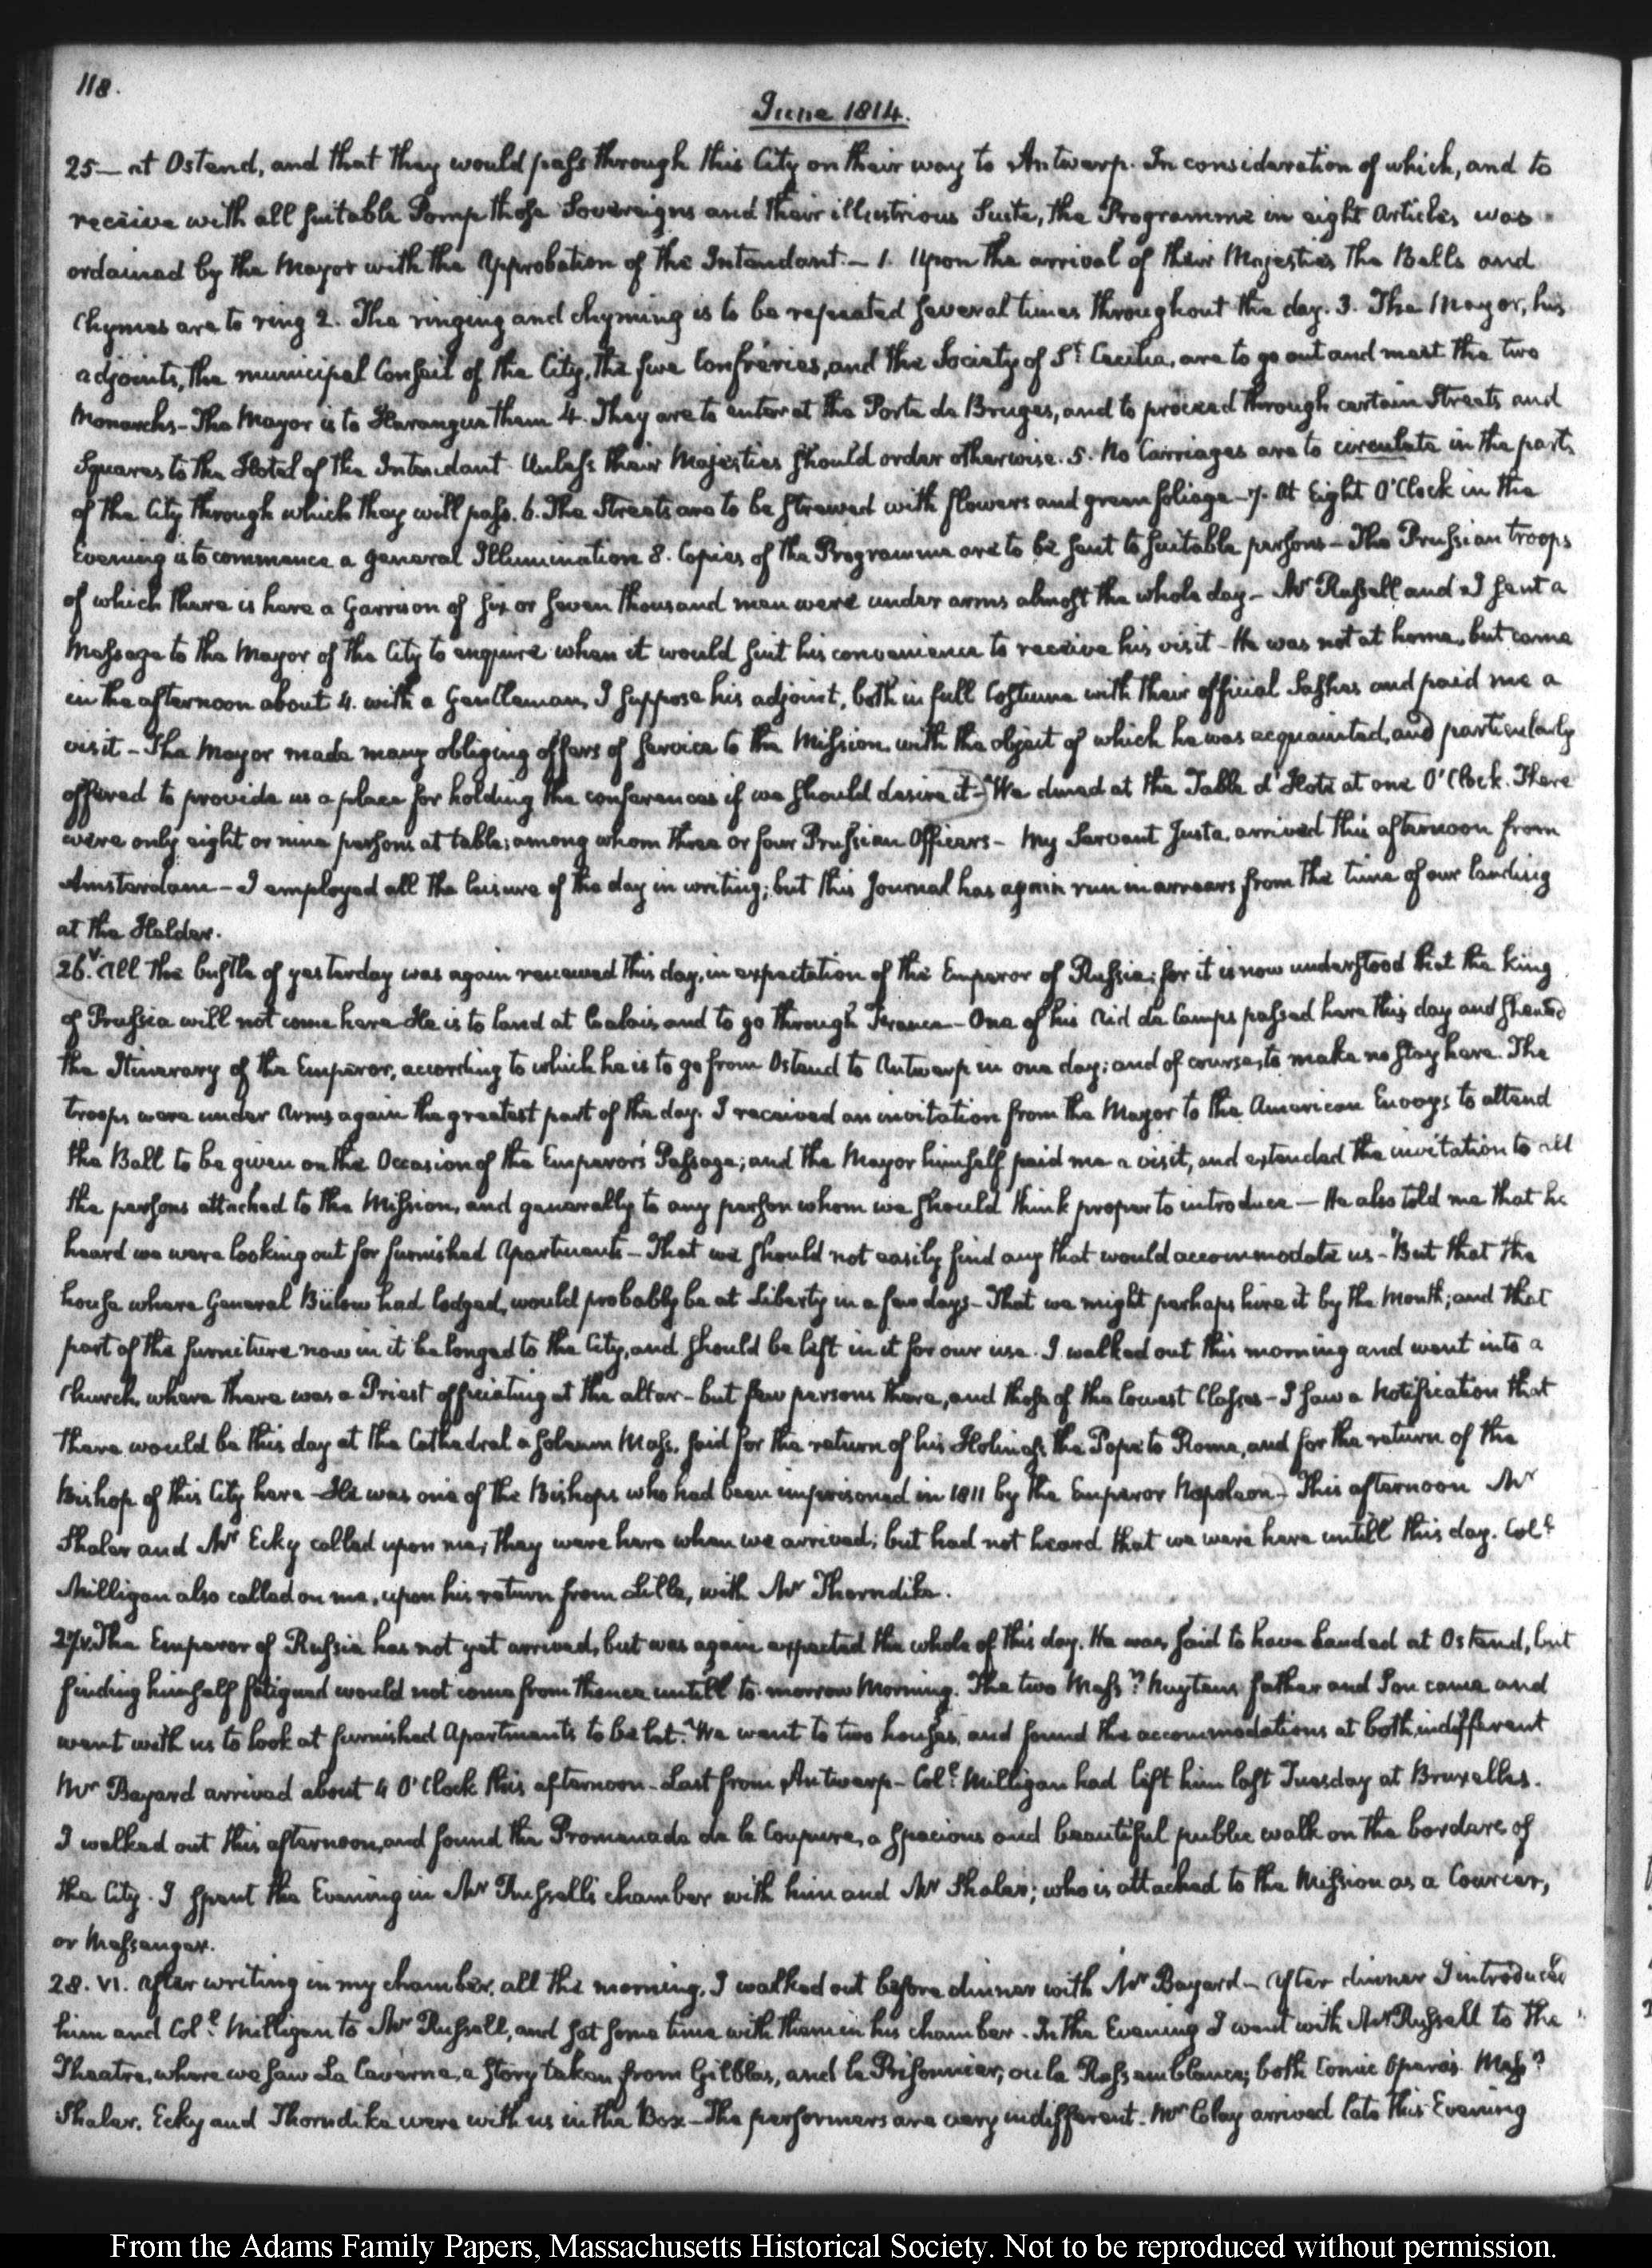 118.
June 1814.
25— at Ostend, and that they would pass through this City on their way to Antwerp. In consideration of which, and to
receive with all suitable Pomp those Sovereigns and their illustrious Suite, the Programme in eight Articles was
ordained by the Mayor with the Approbation of the Intendant.— 1. Upon the arrival of their Majesties the Bells and
Chymes are to ring 2. The ringing and chyming is to be repeated several times throughout the day. 3. The Mayor, his
adjoints, the municipal Conseil of the City, the five Confréries, and the Society of St Cecilia, are to go out and meet the two
Monarchs— The Mayor is to Harangue them 4. They are to enter at the Porte de Bruges, and to proceed through certain Streets and
Squares to the Hotel of the Intendant. Unless their Majesties should order otherwise. 5. No Carriages are to circulate in the parts
of the City through which they will pass. 6. The Streets are to be strewed with flowers and green foliage— 7. At Eight O'Clock in the
Evening is to commence a general Illumination 8. Copies of the Programme are to be sent to suitable persons— The Prussian troops
of which there is here a Garrison of six or seven thousand men were under arms almost the whole day— Mr Russell and I sent a
Message to the Mayor of the City to enquire when it would suit his convenience to receive his visit— He was not at home, but came
in the afternoon about 4. with a Gentleman, I suppose his adjoint, both in full Costume with their official Sashes and paid me a
visit— The Mayor made many obliging offers of service to the Mission, with the object of which he was acquainted, and particularly
offered to provide us a place for holding the conferences if we should desire it— We dined at the Table d'Hote at one O'Clock. There
were only eight or nine persons at table; among whom three or four Prussian Officers— My Servant Juste, arrived this afternoon from
Amsterdam— I employed all the leisure of the day in writing; but this Journal has again run in arrears from the time of our landing
at the Helder.
26. V. All the bustle of yesterday was again renewed this day, in expectation of the Emperor of Russia; for it is now understood that the king
of Prussia will not come here— He is to land at Calais and to go through France— One of his Aid de Camps passed here this day and shewed
the Itinerary of the Emperor, according to which he is to go from Ostend to Antwerp in one day; and of course, to make no stay here. The
troops were under Arms again the greatest part of the day. I received an invitation from the Mayor to the American Envoys to attend
the Ball to be given on the Occasion of the Emperor's Passage; and the Mayor himself paid me a visit, and extended the invitation to all
the persons attached to the Mission, and generally to any person whom we should think proper to introduce— He also told me that he
heard we were looking out for furnished Apartments— That we should not easily find any that would accommodate us— But that the
house where General Bülow had lodged, would probably be at Liberty in a few days— That we might perhaps hire it by the Month; and that
part of the furniture now in it belonged to the City, and should be left in it for our use. I walked out this morning and went into a
Church, where there was a Priest officiating at the altar— but few persons there, and those of the lowest Classes— I saw a Notification that
there would be this day at the Cathedral a solemn Mass, said for the return of his Holiness the Pope to Rome, and for the return of the
Bishop of this City here— He was one of the Bishops who had been imprisoned in 1811 by the Emperor Napoleon— This afternoon Mr
Shaler and Mr Ecky called upon me; they were here when we arrived; but had not heard that we were here untill this day. Coll.
Milligan also called on me, upon his return from Lille, with Mr Thorndike.
27. V. The Emperor of Russia has not yet arrived, but was again expected the whole of this day. He was said to have landed at Ostend, but
finding himself fatigued would not come from thence untill to-morrow Morning. The two Messrs Nuytens father and Son came and
went with us to look at furnished Apartments to be let. We went to two houses, and found the accommodations at both, indifferent
Mr Bayard arrived about 4 O'Clock this afternoon— Last from Antwerp— Coll. Milligan had left him last Tuesday at Bruxelles.
I walked out this afternoon, and found the Promenade de la Coupure, a spacious and beautiful public walk on the borders of
the City. I spent the Evening in Mr Russell's chamber with him and Mr Shaler; who is attached to the Mission as a Courier,
or Messenger.
28. VI. After writing in my chamber, all the morning, I walked out before dinner with Mr Bayard— After dinner I introduced
him and Coll. Milligan to Mr Russell, and sat some time with them in his chamber. In the Evening I went with Mr Russell to the
Theatre, where we saw La Caverne, a story taken from Gilblas, and le Prisonnier, ou la Ressemblance; both Comic Operas. Messrs
Shaler, Ecky and Thorndike were with us in the Box— The performers are very indifferent. Mr Clay arrived late this Evening
From the Adams Family Papers, Massachusetts Historical Society. Not to be reproduced without permission.